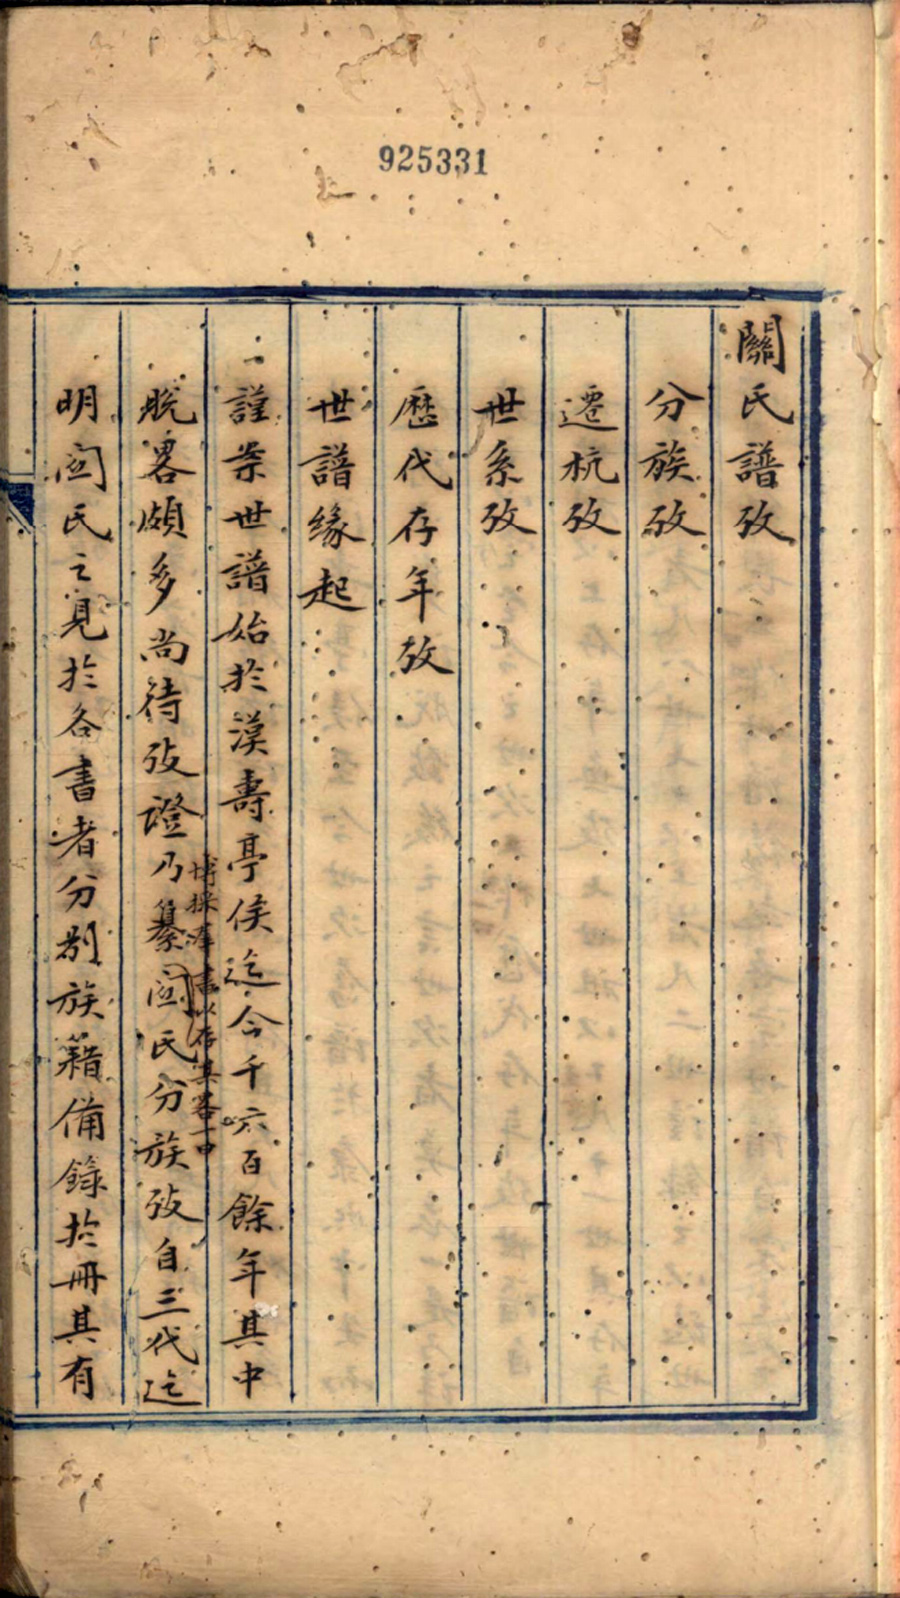 925331
關氏譜攷
分族攷
遷杭攷
世系攷
歷代存年攷
世譜緣起
一謹案世譜始於漢壽亭侯迄今千六百餘年其中
脫畧頗多尚待攷證乃纂関氏分族攷自三代迄
博採羣書以存其畧
明関氏之見於各書者分別族籍備錄於冊其有